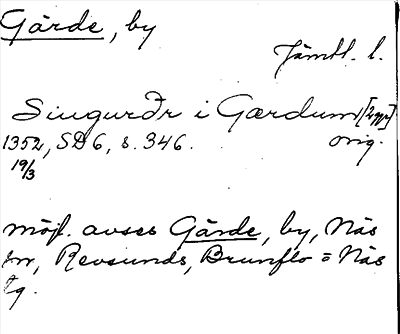 Gärde, by
Jämtl. l.
Siugurðr i Gærdum [2 ggr]
1352, SD 6, s. 346. orig.
19/3
möjl. avses Gärde, by, Näs
sn, Revsunds, Brunflo o Näs
tg.